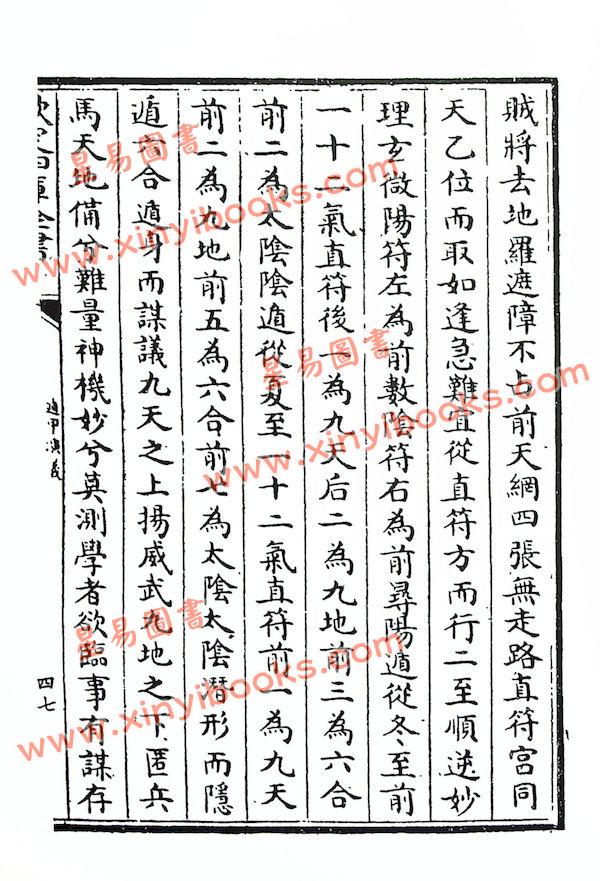 賊將去地羅遮障不占前天網四張無走路直符宮同
天乙位而取如逢急難宜從直符方而行二至順逆妙
理玄微陽符左為前數陰符右為前尋陽遁從冬至前
一十二氣直符後一為九天后二為九地前三為六合
前二為太陰陰遁從夏至一十二氣直符前一為九天
前二為九地前五為六合前七為太陰太陰潛形而隱
遁六合遁身而謀議九天之上揚威武九地之下匿兵
馬天地備兮難量神機妙兮莫測學者欲臨事有謀存
遁甲演義
四七
昊易圖書
www.xinyibooks.com
昊易圖書
www.xinyibooks.com
昊易圖書
www.xinyibooks.com